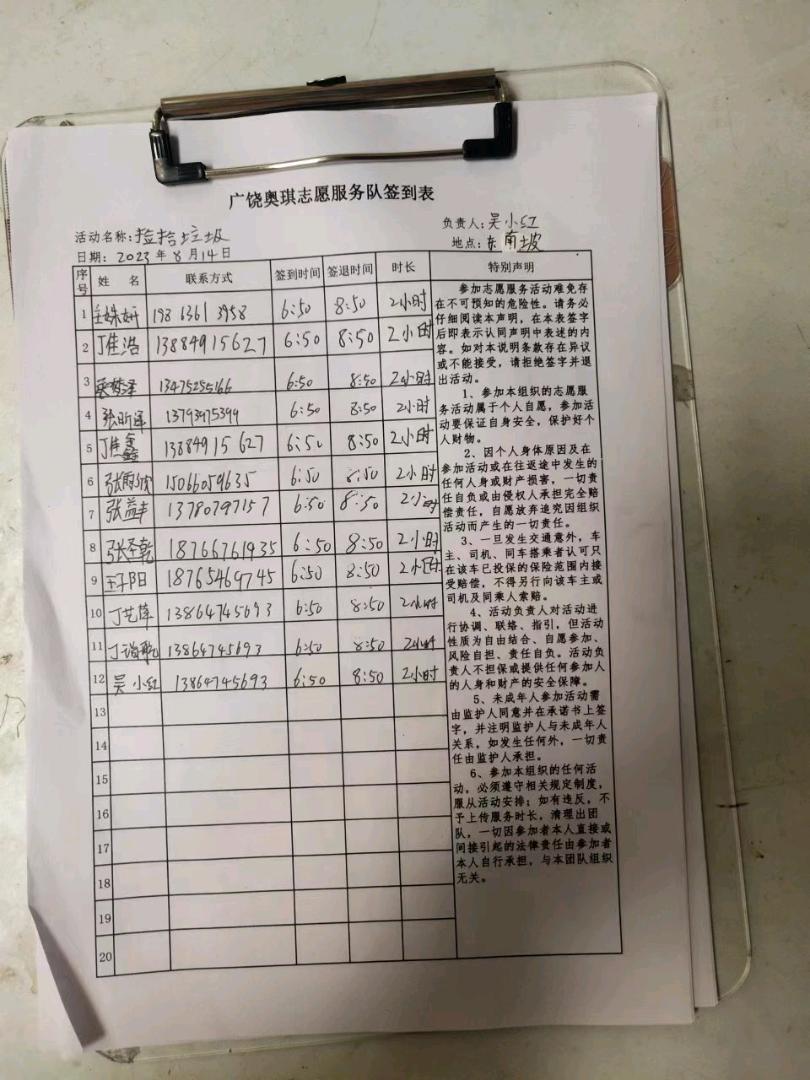 广饶奥琪志愿服务队签到表
活动名称:捡拾垃圾
负责人:吴小红
日期:2023年8月14日
地点:东南坡
序号 姓 名 联系方式 签到时间 签退时间 时长 特别声明
1 198 6361 3958 6:50 8:50 2小时
2 丁佳浩 13884915627 6:50 8:50 2小时
3 13475255166 6:50 8:50 2小时
4 张昕泽 13793975399 6:50 8:50 2小时
5 丁佳鑫 13884915627 6:50 8:50 2小时
6 15066059635 6:50 8:50 2小时
7 张益丰 13780797157 6:50 8:50 2小时
8 张圣乾 18766761935 6:50 8:50 2小时
9 18765469745 6:50 8:50 2小时
10 13864745693 6:50 8:50 2小时
11 13864745693 6:50 8:50 2小时
12 吴小红 13864745693 6:50 8:50 2小时
13
14
15
16
17
18
19
20
参加志愿服务活动难免存
在不可预知的危险性。请务必
仔细阅读本声明,在本表签字
后即表示认同声明中表述的内
容。如对本说明条款存在异议
或不能接受,请拒绝签字并退
出活动。
1、参加本组织的志愿服
务活动属于个人自愿,参加活
动要保证自身安全,保护好个
人财物。
2、因个人身体原因及在
参加活动或在往返途中发生的
任何人身或财产损害,一切责
任自负或由侵权人承担完全赔
偿责任,自愿放弃追究因组织
活动而产生的一切责任。
3、一旦发生交通意外,车
主、司机、同车搭乘者认可只
在该车已投保的保险范围内接
受赔偿,不得另行向该车主或
司机及同乘人索赔。
4、活动负责人对活动进
行协调、联络、指引,但活动
性质为自由结合、自愿参加、
风险自担、责任自负。活动负
责人不担保或提供任何参加人
的人身和财产的安全保障。
5、未成年人参加活动需
由监护人同意并在承诺书上签
字,并注明监护人与未成年人
关系,如发生任何外,一切责
任由监护人承担。
6、参加本组织的任何活
动,必须遵守相关规定制度,
服从活动安排;如有违反,不
予上传服务时长,清理出团
队,一切因参加者本人直接或
间接引起的法律责任由参加者
本人自行承担,与本团队组织
无关。